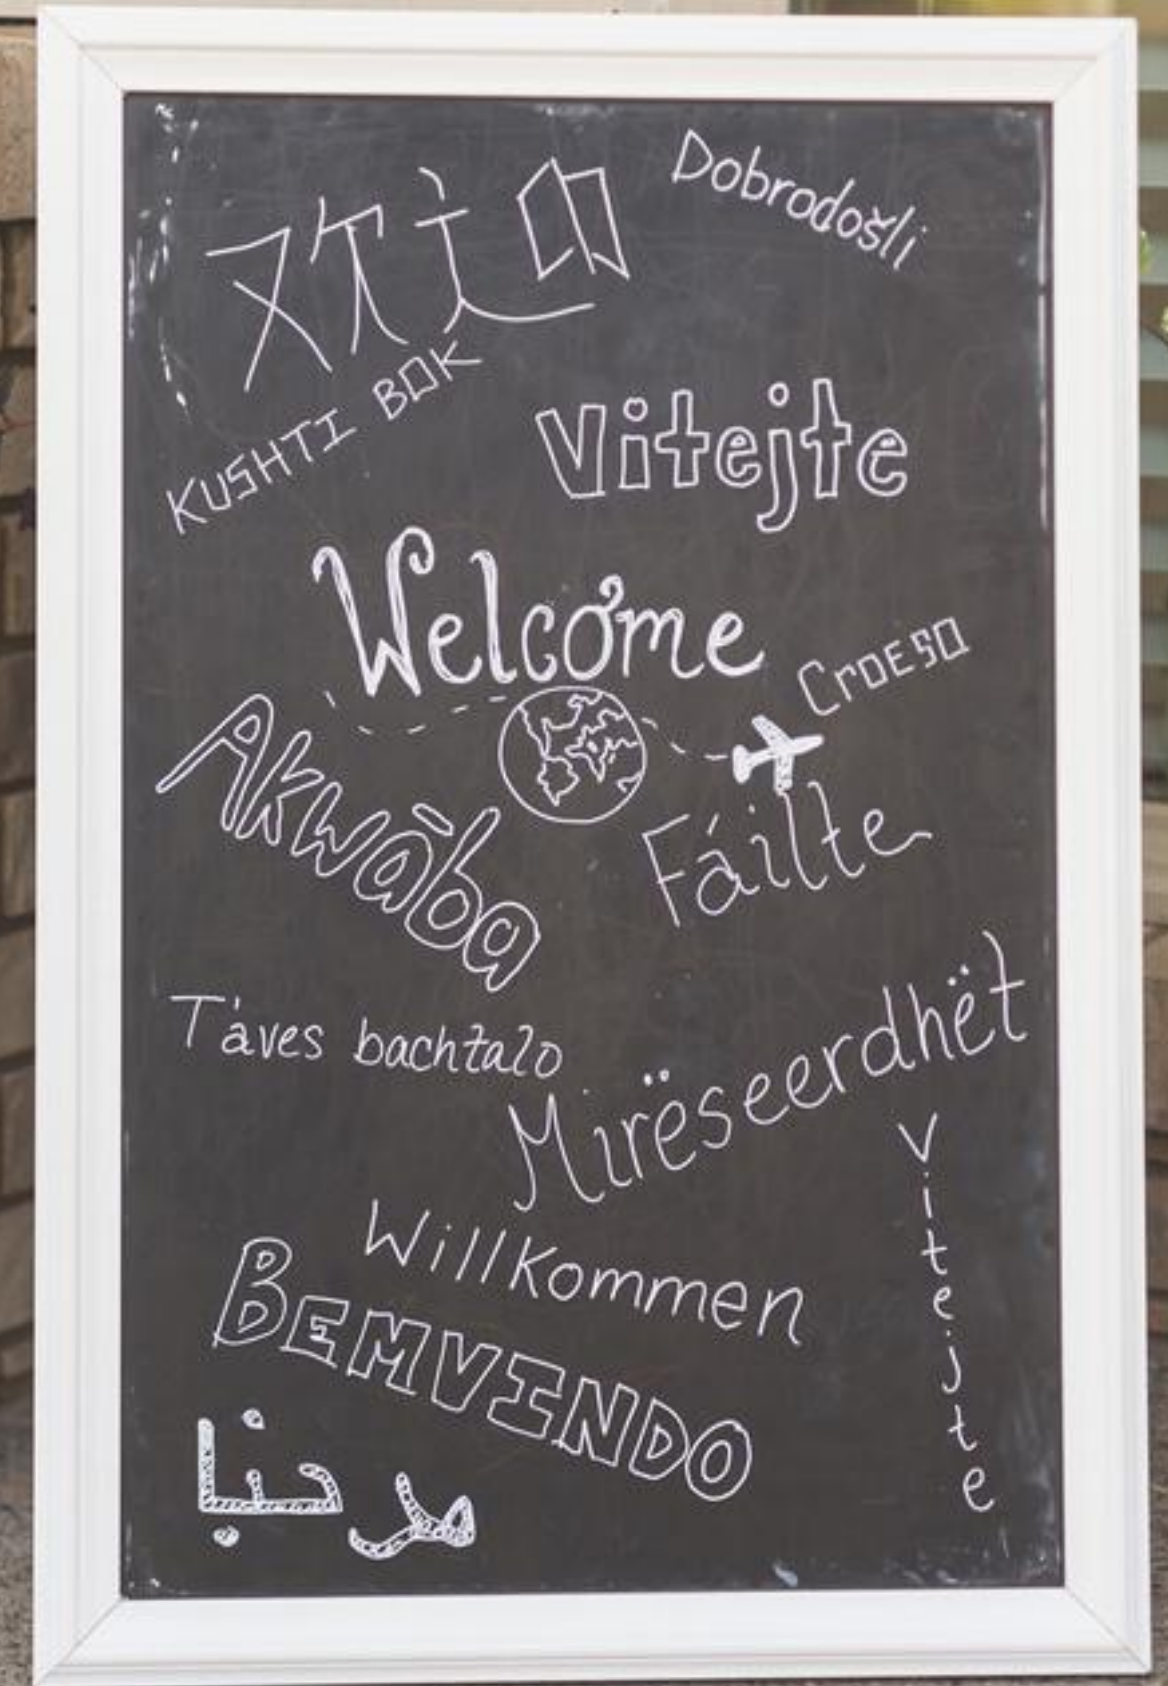 欢迎
Dobrodošli
KUSHTI BOK
Vitejte
Welcome
Croeso
Akwāba
Fáilte
T'aves bachtalo
Mirëseerdhët
Vitejte
Willkommen
BEMVINDO
مرحبا